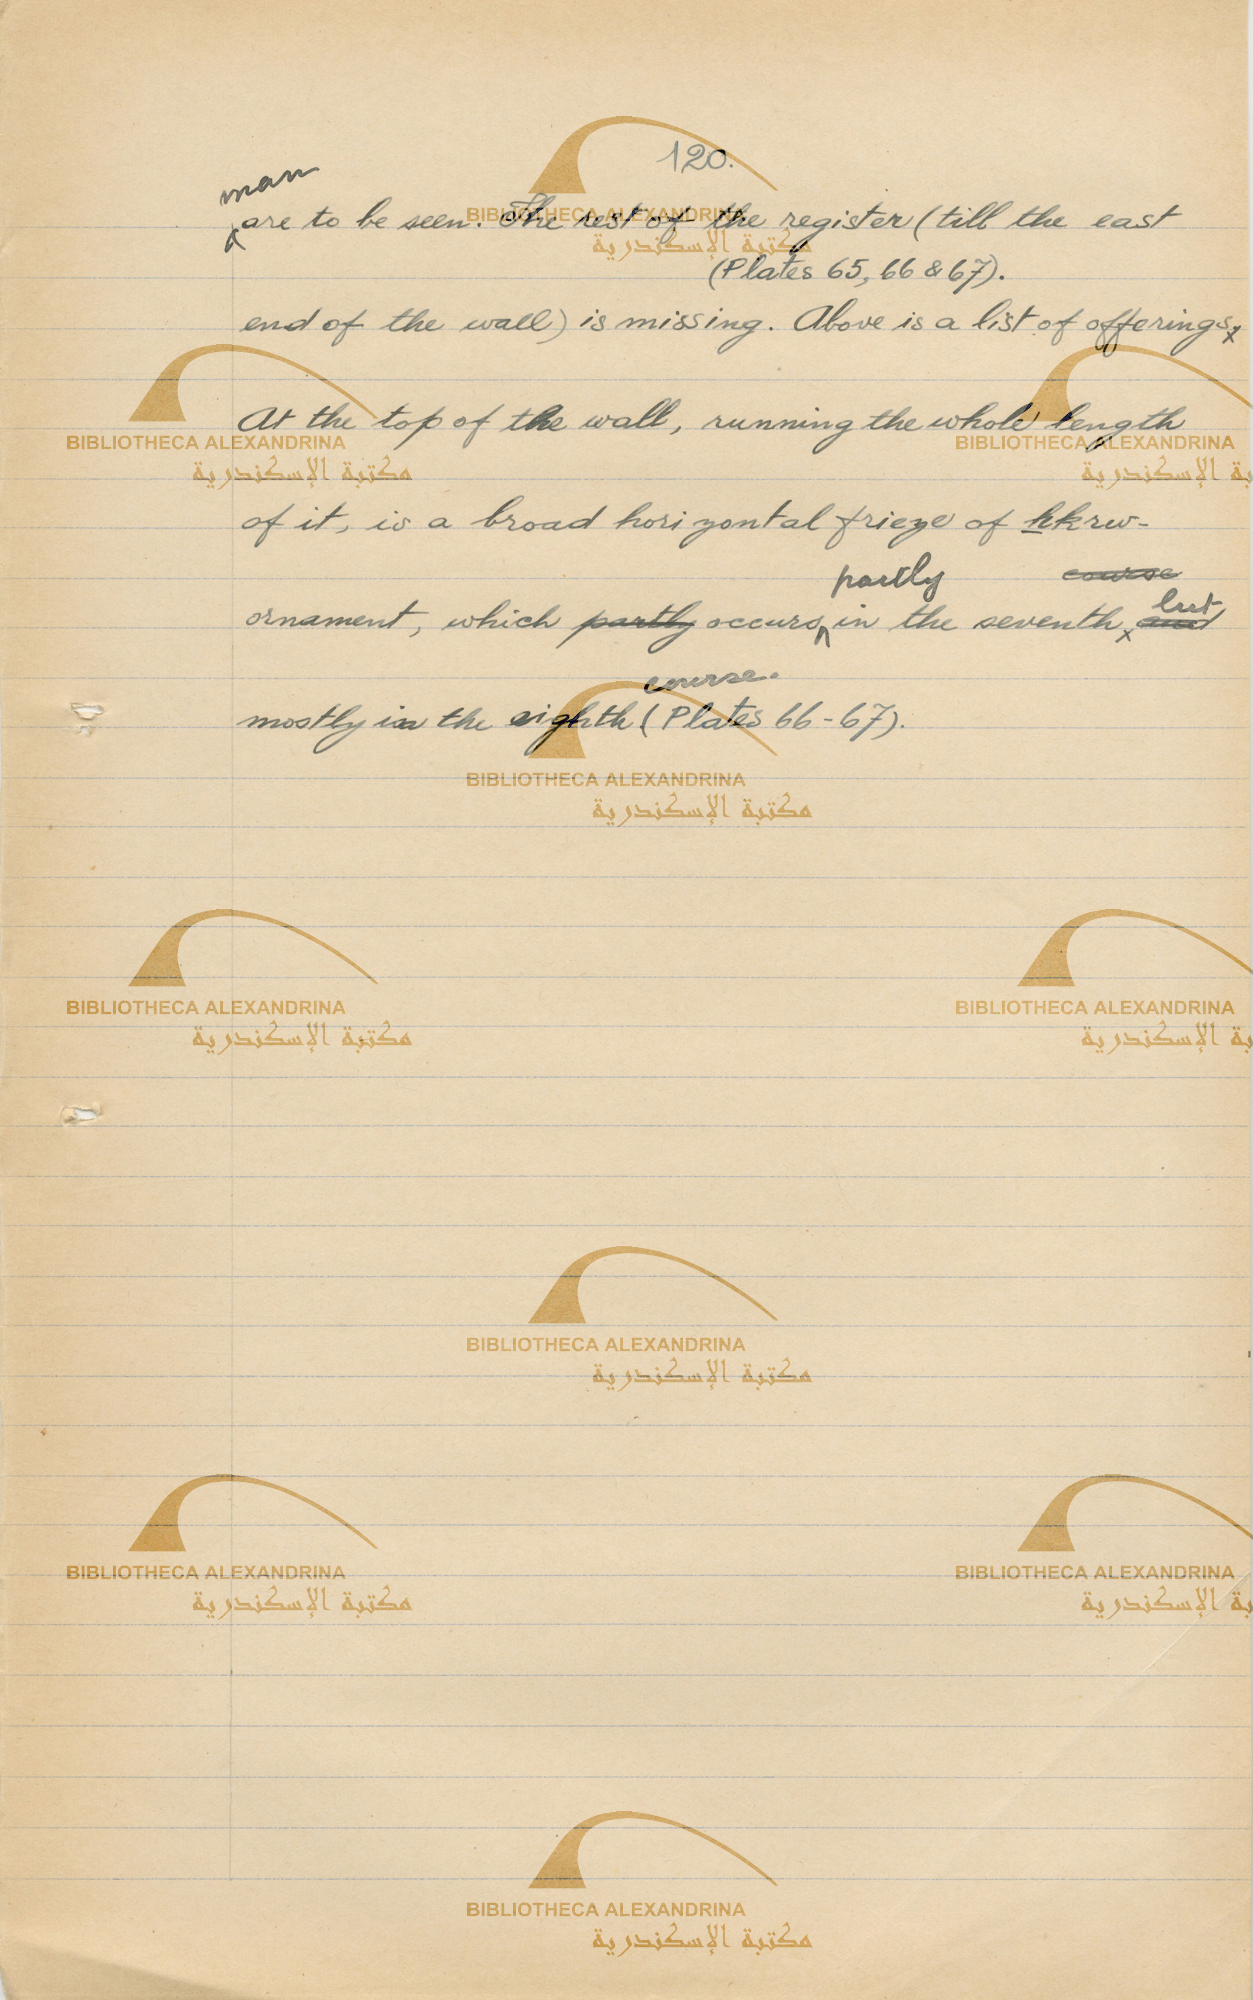 120.
man
are to be seen. The rest of the register (till the east
(Plates 65, 66 & 67).
end of the wall) is missing. Above is a list of offerings x
At the top of the wall, running the whole length
of it, is a broad horizontal frieze of ẖkrw-
partly course
ornament, which partly occurs in the seventh x and but
course.
mostly in the eighth (Plates 66-67).
BIBLIOTHECA ALEXANDRINA
مكتبة الإسكندرية
BIBLIOTHECA ALEXANDRINA
مكتبة الإسكندرية
BIBLIOTHECA ALEXANDRINA
مكتبة الإسكندرية
BIBLIOTHECA ALEXANDRINA
مكتبة الإسكندرية
BIBLIOTHECA ALEXANDRINA
مكتبة الإسكندرية
BIBLIOTHECA ALEXANDRINA
مكتبة الإسكندرية
BIBLIOTHECA ALEXANDRINA
مكتبة الإسكندرية
BIBLIOTHECA ALEXANDRINA
مكتبة الإسكندرية
BIBLIOTHECA ALEXANDRINA
مكتبة الإسكندرية
BIBLIOTHECA ALEXANDRINA
مكتبة الإسكندرية